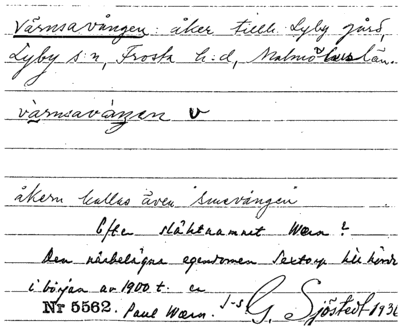 Värnsavången: åker tillh. Lyby gård,
Lyby s:n, Frosta h:d, Malmöhus län.
värnsavången v
åkern kallas även "smevången"
Efter släktnamnet Wærn?
Den närbelägna egendomen Sextorp tillhörde
i början av 1900 t. en
Nr 5562. Paul Wærn. J-s. G. Sjöstedt 1936